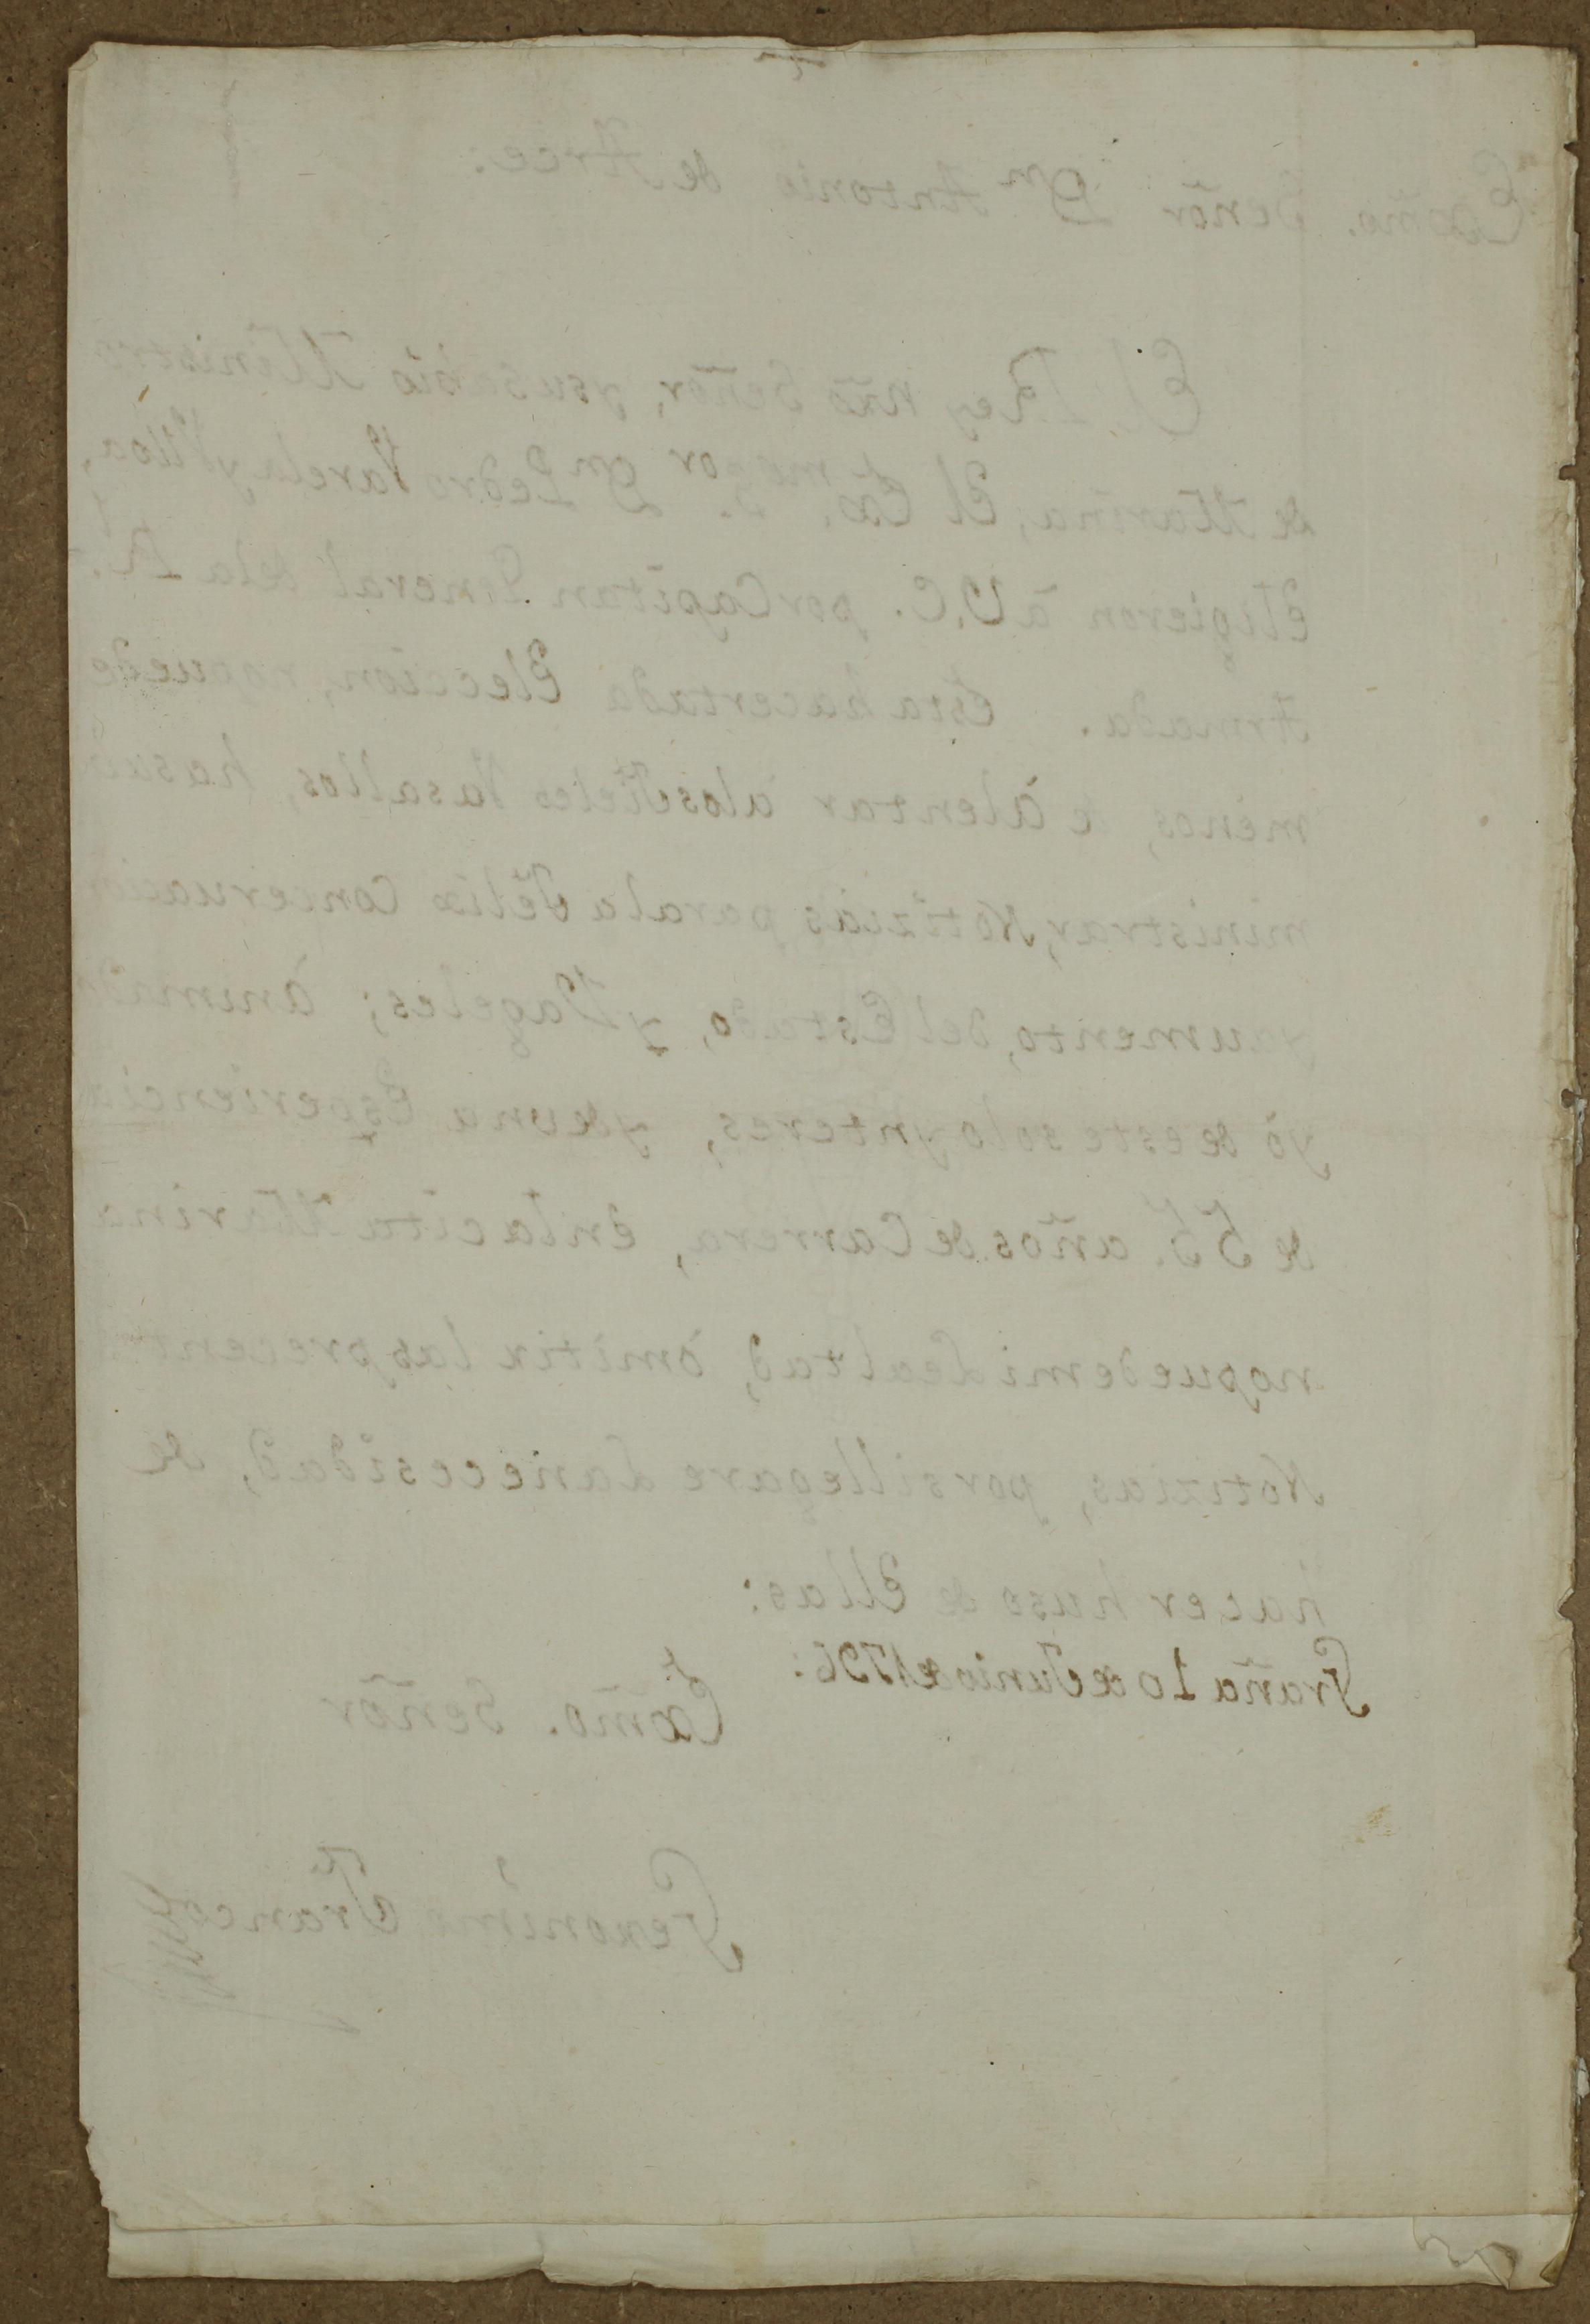 Exmõ. Señor Dn Antonio de Arce:
El Rey nrõ Señor, ysusabio Ministro
de Marina, El Exmo. Sor. Dn Pedro Varela y Ulloa,
eligieron à V.E. por Capitan General dela Rl.
Armada. Esta hacertada Eleccion, nopuede
menos, de àlentar àlosfieles Vasallos, hasub
ministrar, Notizias parala Felix Concervacion
yaumento, del Estado, y Vageles; ànimado
yò deeste solo ynteres, ydeuna Esperiencia
de 55. años de Carrera, enlacita Marina
nopuedemi Lealtad, òmitir las precentes
Notizias, porsillegare Lanececidad, de
hacer huso de Ellas:
Graña 10 deJuniode1796:
Exmõ. Señor
Geronimo Franco